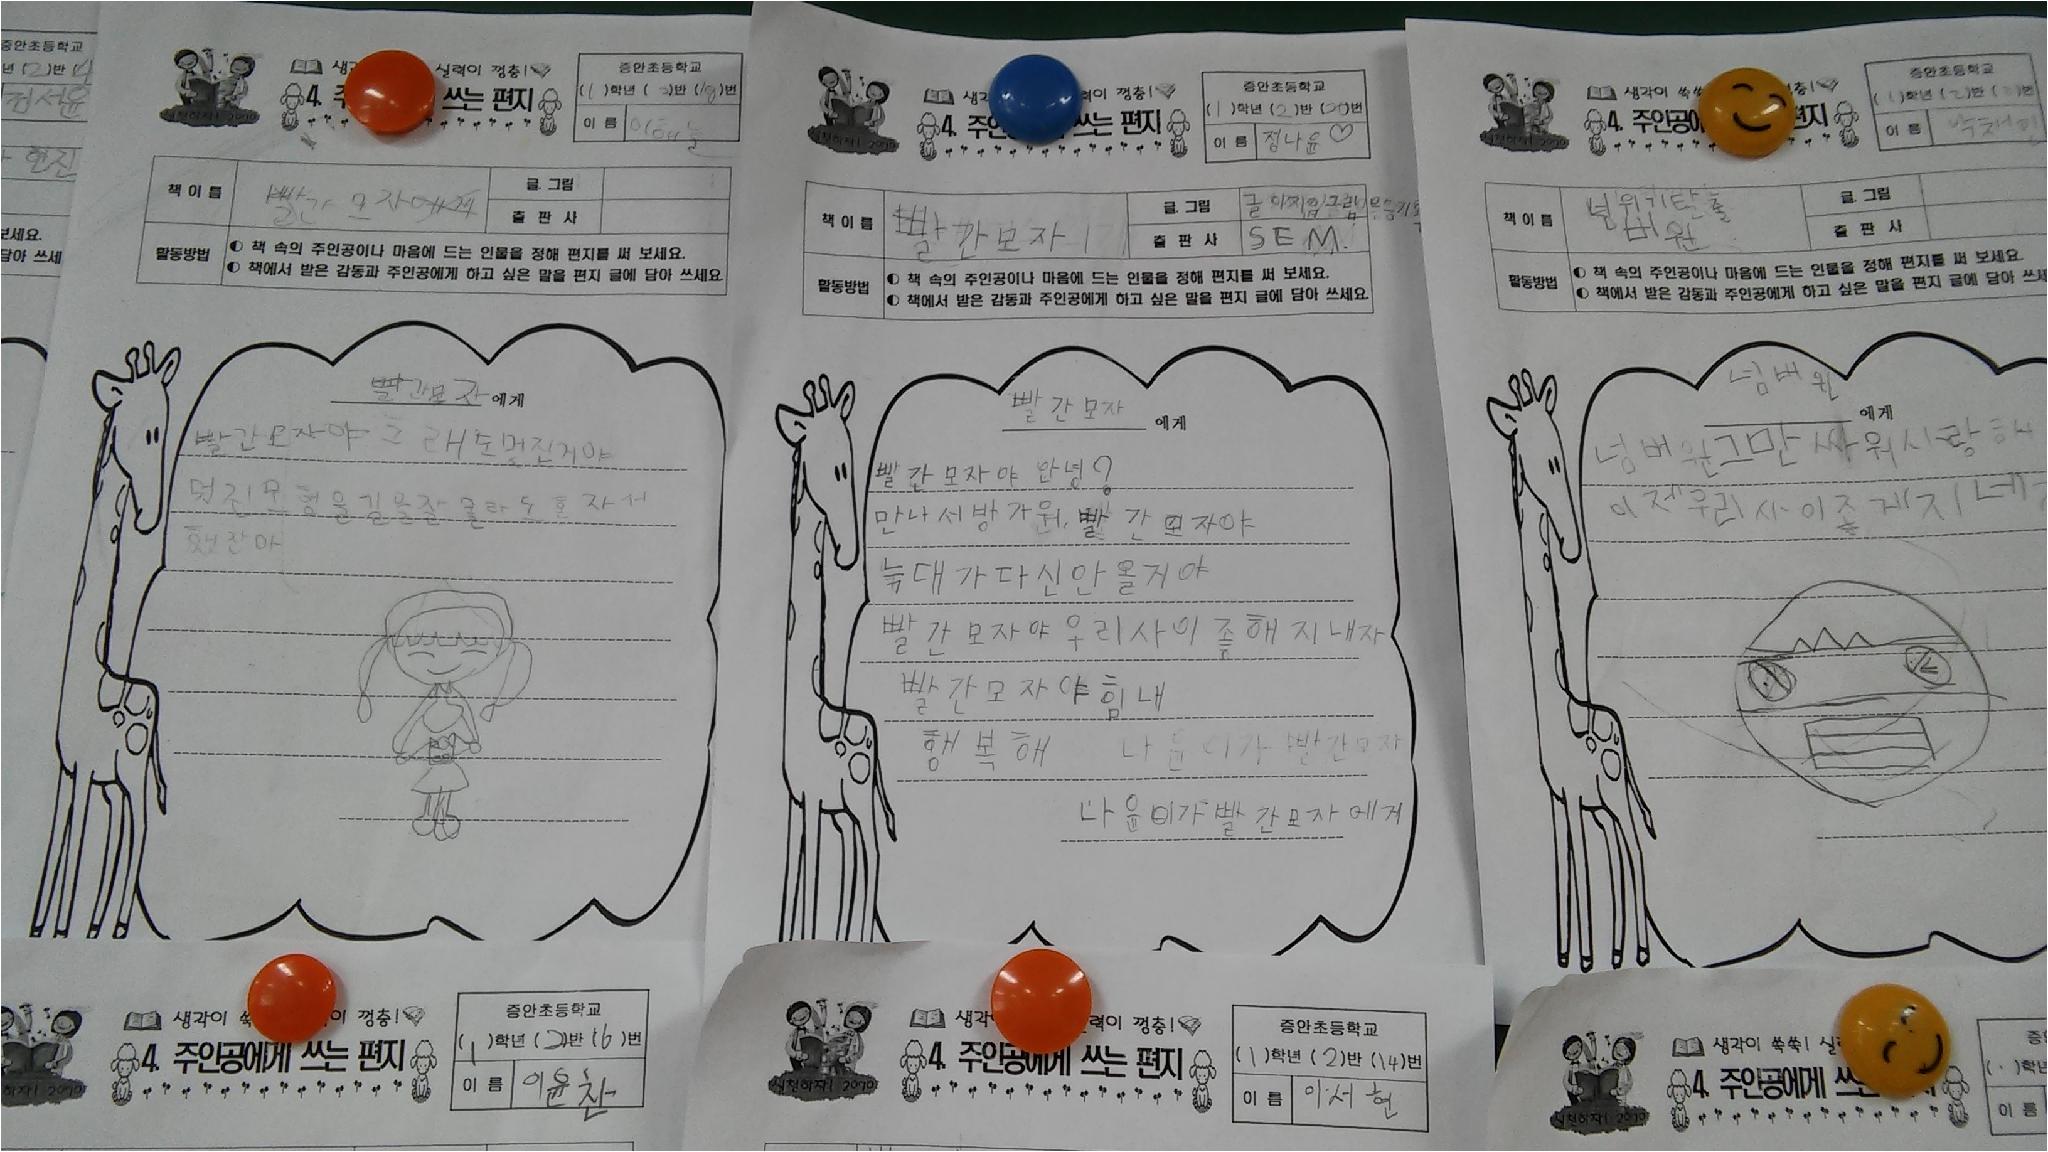 증안초등학교
년 (2)반 (4
김서윤
한진
보세요.
담아 쓰세
생각 실력이 껑충!
4. 주 쓰는 편지
증안초등학교
(1)학년 (2)반 (18)번
이 름 이하늘
책 이 름 빨간 모자에게
글.그림
출 판 사
활동방법
책 속의 주인공이나 마음에 드는 인물을 정해 편지를 써 보세요.
책에서 받은 감동과 주인공에게 하고 싶은 말을 편지 글에 담아 쓰세요.
빨간모자 에게
빨간모자야 그래도멋진거야
멋진모험을길을잘몰라도혼자서
했잖아
생각 력이 껑충!
4. 주인공 쓰는 편지
증안초등학교
(1)학년 (2)반 (20)번
이 름 정나윤♡
책 이 름 빨간모자
글.그림
출 판 사 SEM.
활동방법
책 속의 주인공이나 마음에 드는 인물을 정해 편지를 써 보세요.
책에서 받은 감동과 주인공에게 하고 싶은 말을 편지 글에 담아 쓰세요.
빨간모자 에게
빨간모자야 안녕?
만나서방가워. 빨간모자야
늑대가다신안올거야
빨간모자야우리사이좋해지내자
빨간모자야힘내
행복해 나윤이가빨간모자
나윤이가빨간모자에게
생각이 쑥쑥 충!
4. 주인공에 편지
증안초등학교
(1)학년 (2)반 번
이 름 박채민
책 이 름
넘버원
글.그림
출 판 사
활동방법
책 속의 주인공이나 마음에 드는 인물을 정해 편지를 써 보세요.
책에서 받은 감동과 주인공에게 하고 싶은 말을 편지 글에 담아 쓰세
넘버원 에게
넘버원그만싸워사랑해
이제우리사이좋게지내
생각이 쑥 이 껑충!
4. 주인공에게 쓰는 편지
증안초등학교
(1)학년 (2)반 (6)번
이 름 이윤찬
실천하자! 2010
생각 력이 껑충!
4. 주인공에게 쓰는 편지
증안초등학교
(1)학년 (2)반 (14)번
이 름 이서현
실천하자! 2010
생각이 쑥쑥! 실
4. 주인공에게 쓰 지
증
)학년
이 름